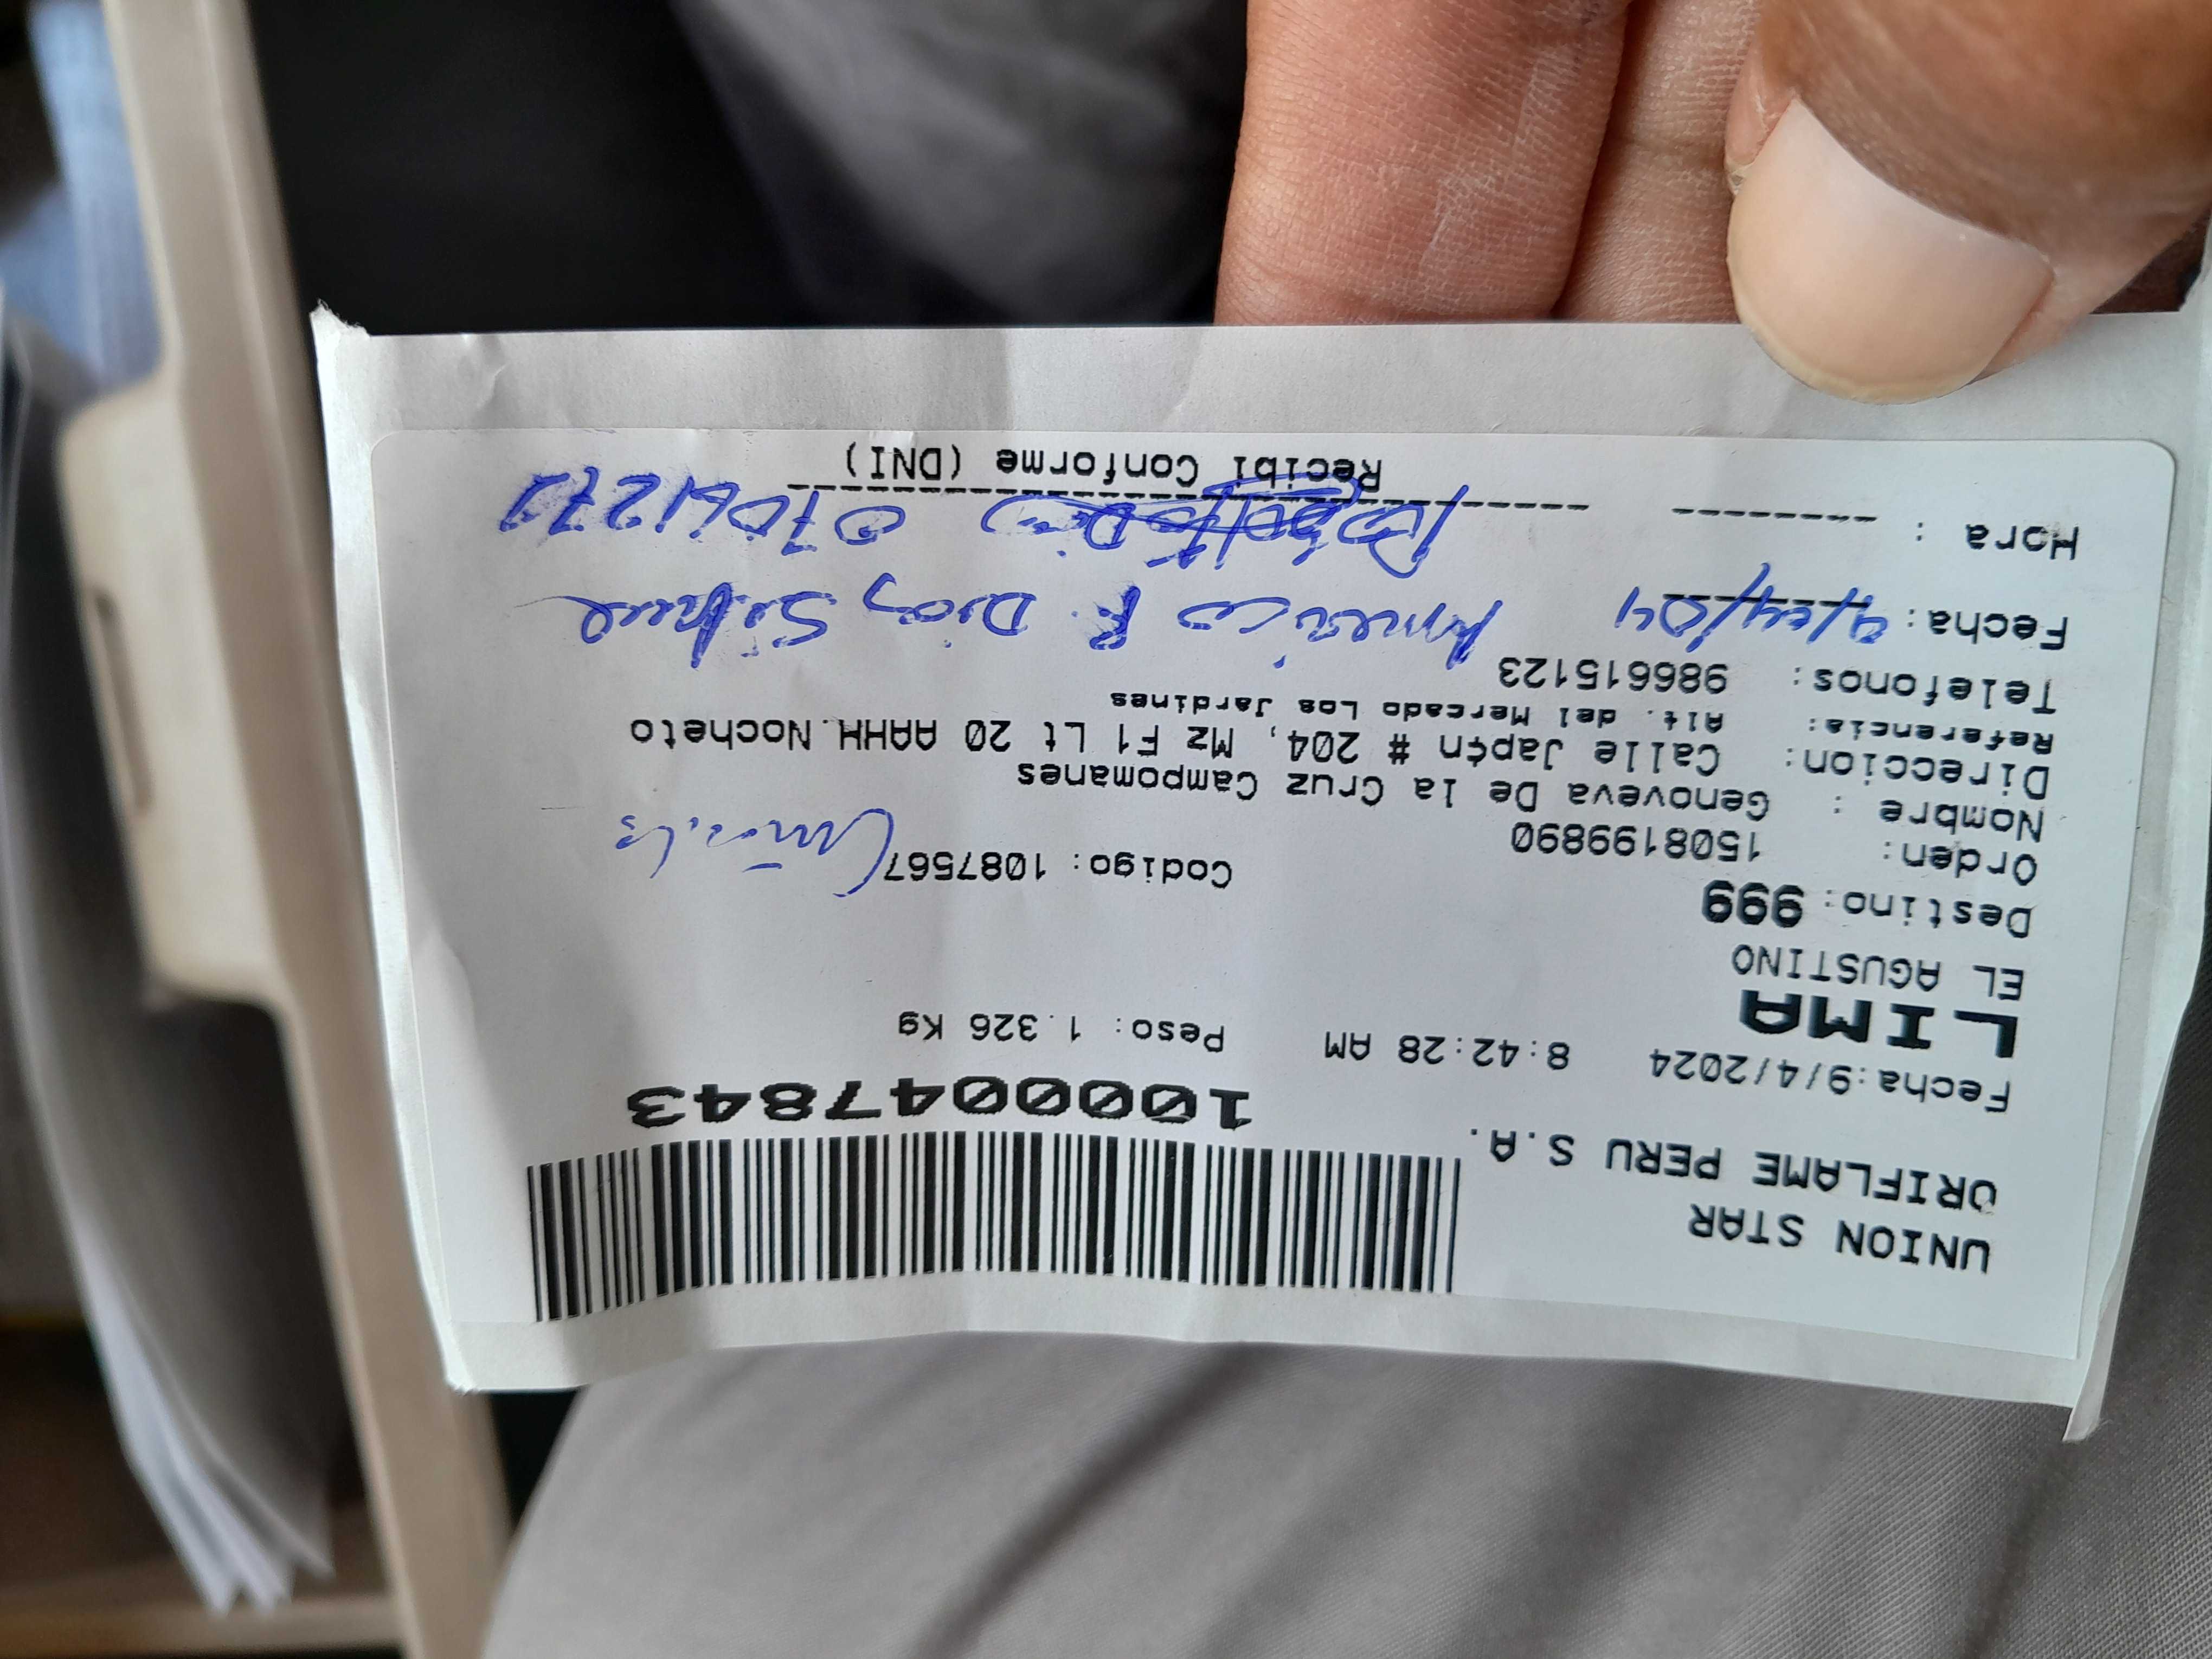 UNION STAR
ORIFLAME PERU S.A.
1000047843
Fecha:9/4/2024 8:42:28 AM Peso: 1.326 Kg
LIMA
EL AGUSTINO
Destino: 999
Orden: 1508199890 Codigo: 1087567
Nombre : Genoveva De la Cruz Campomanes
Direccion: Calle Jap¢n # 204, Mz F1 Lt 20 AAHH.Nocheto
Referencia: Alt. del Mercado Los Jardines
Telefonos: 986615123
Fecha: Americo F. Diaz
Hora :
Recibi Conforme (DNI)